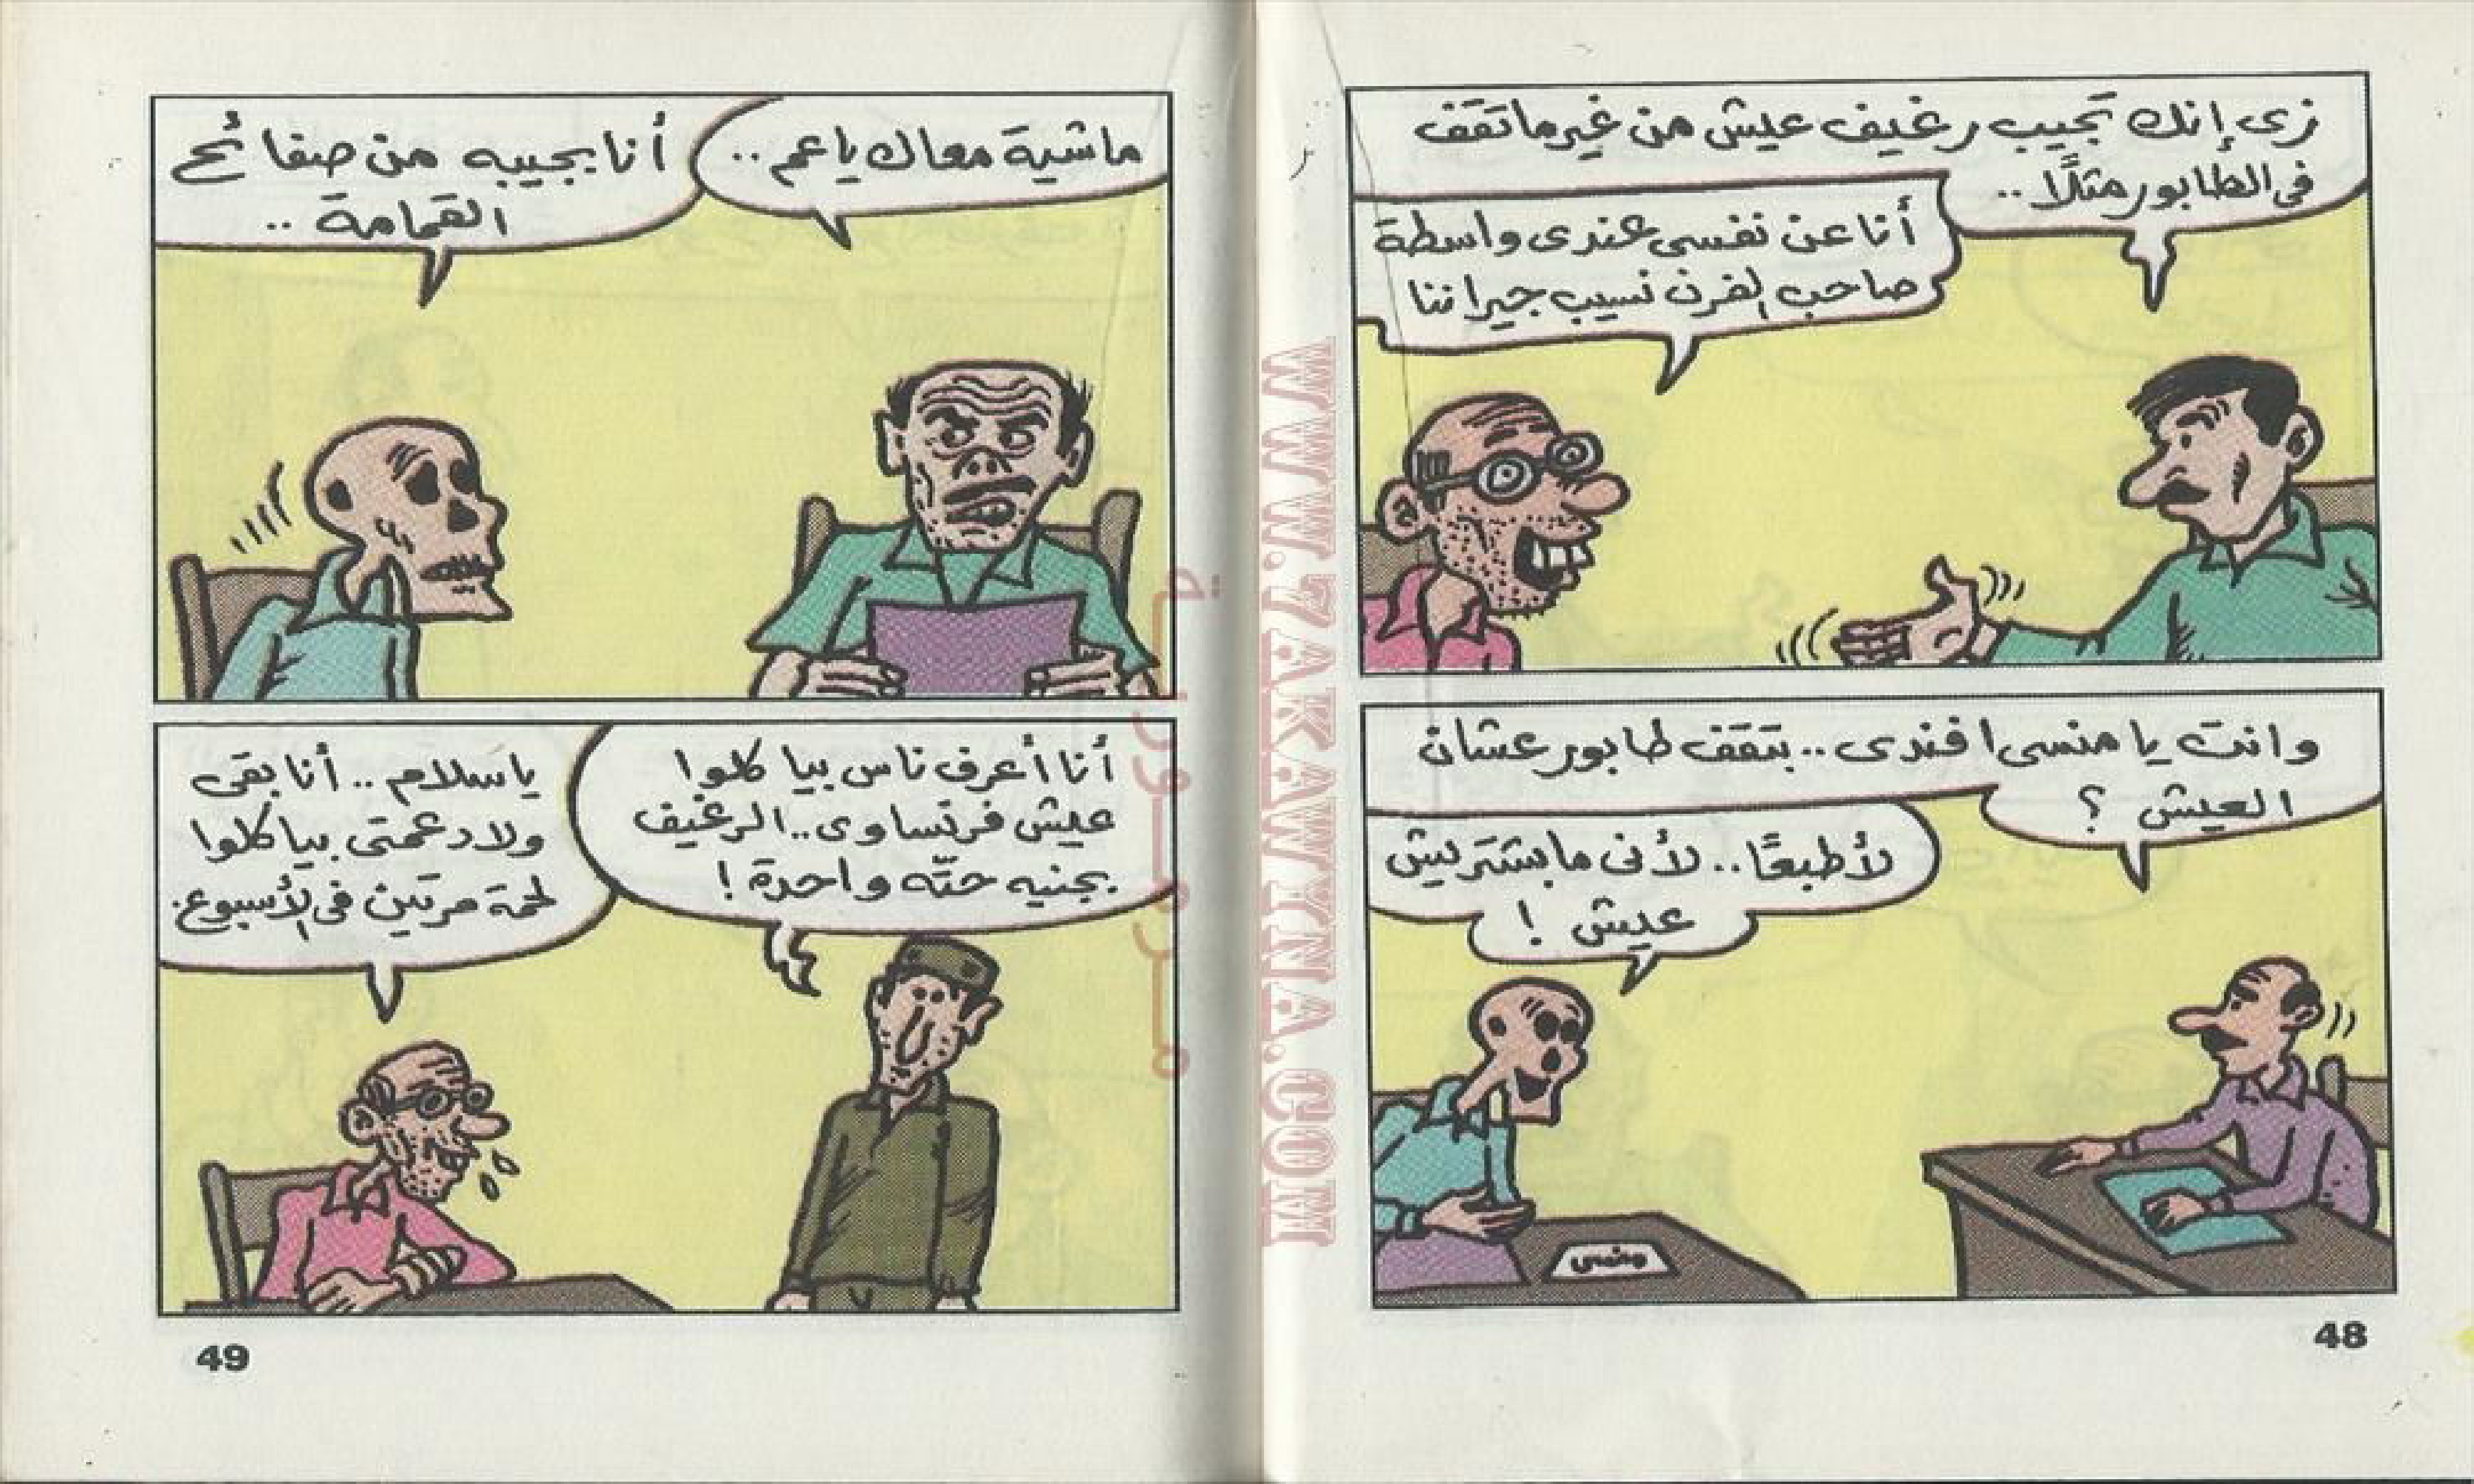 زى إنك تجيب رغيف عيش من غير ما تقف
فى الطابور مثلًا..
أنا عن نفسى عندى واسطة
صاحب الفرن نسيب جيراننا
وانت يا منسى افندى.. بتقف طابور عشان
العيش ؟
لأ طبعًا.. لأنى ما بشتريش
عيش !
منسى
48
ماشية معاك يا عم ..
أنا بجيبه من صفائح
القمامة ..
أنا أعرف ناس بيا كلوا
عيش فرنساوى.. الرغيف
بجنيه حتّه واحدة !
يا سلام .. أنا بقى
ولاد عمتى بيا كلوا
لحمة مرتين فى الأسبوع.
49
WWW.7AKAWWINA.COM